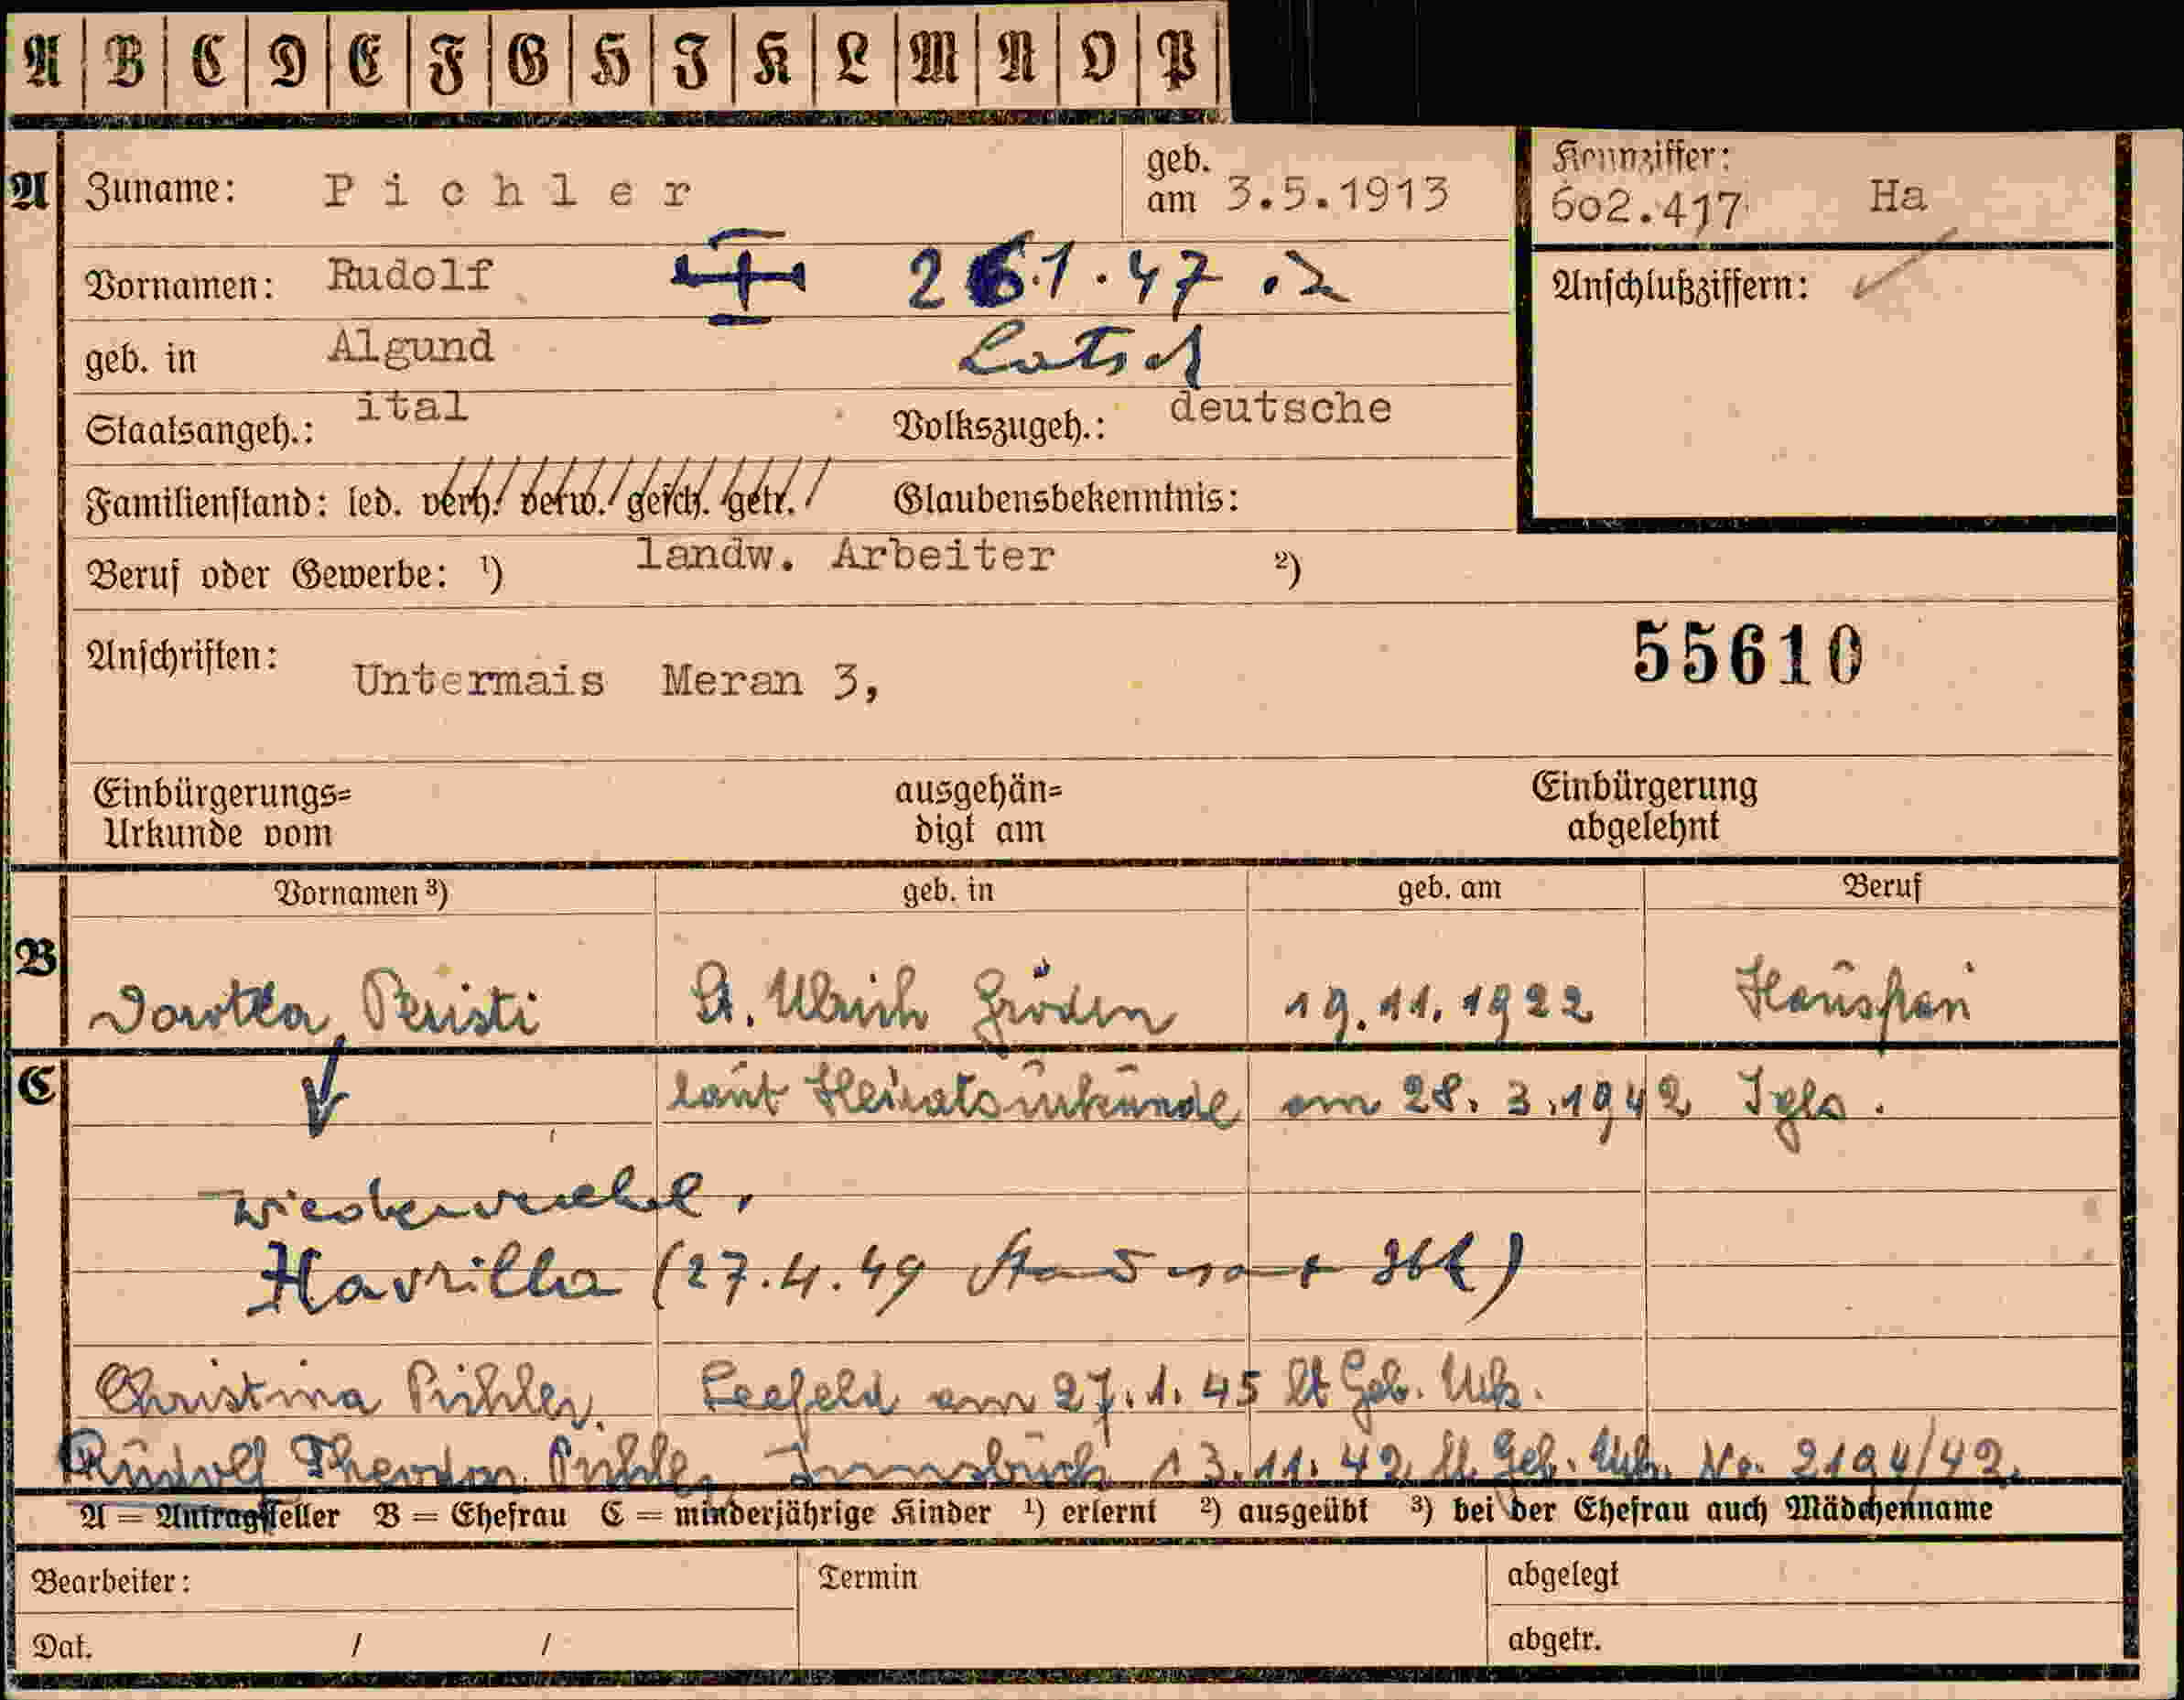 A B C D E F G H J K L M N O P
A Zuname: Pichler geb. am 3.5.1913 Kennziffer: 602.417 Ha
Vornamen: Rudolf 26.1.47 Anschlußziffern:
geb. in Algund Latsch
Staatsangeh.: ital Volkszugeh.: deutsche
Familienstand: led. verh. verw. gesch. getr. Glaubensbekenntnis:
Beruf oder Gewerbe: ¹) landw. Arbeiter ²)
55610
Anschriften: Untermais Meran 3,
Einbürgerungs= ausgehän= Einbürgerung
Urkunde vom digt am abgelehnt
Vornamen ³) geb. in geb. am Beruf
B Dorothea Peristi St. Ulrich Gröden 19.11.1922 Hausfrau
C laut Heiratsurkunde am 28.3.1942 Igls.
wiederverehel.
Havrilla (27.4.49
Christina Pichler. Seefeld am 27.1.45 lt Geb. Urk.
Rudolf Theodor Pichler Innsbruck 13.11.42 lt. Geb. Urk. No. 2194/42.
A = Antragsteller B = Ehefrau C = minderjährige Kinder ¹) erlernt ²) ausgeübt ³) bei der Ehefrau auch Mädchenname
Bearbeiter: Termin abgelegt
Dat. / / abgetr.